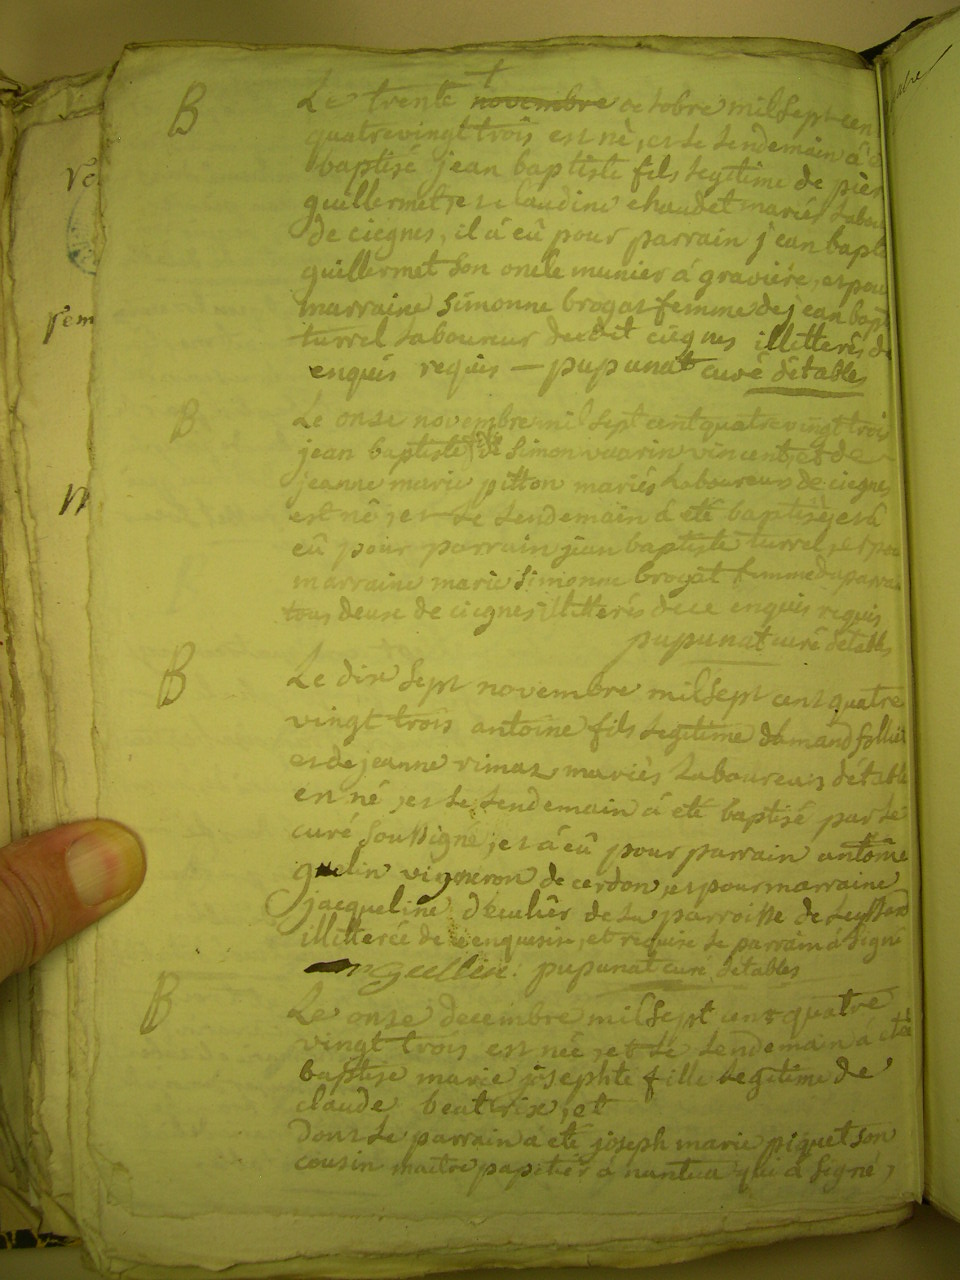 B Le trente novembre octobre mil sept cen
quatrevingt trois est né, et le lendemain a é
baptisé jean baptiste fils legitime de pier
guillermet, et claudine chaudet mariés Labou
de ciegnes, il a eû pour parrain jean bapt
guillermet son oncle munier á graviere, et pou
marraine Simonne brogat femme de jean bapt
turrel Laboureur dudit ciegnes illitterés de
enquis requis — pupunat curé détables
B Le onze novembre mil sept cent quatre vingt troi
jean baptiste fils de Simon vuarin vincent, et de
jeanne marie pitton mariés Laboureurs de ciegnes
est né, et le lendemain á eté baptisé, et á
eû pour parrain jean baptiste turrel, et pou
marraine marie Simonne brogat femme du parra
tous deuse de ciegnes illitterés de ce enquis requis
pupunat curé détables
B Le dix Sept novembre mil Sept cent quatre
vingt trois antoine fils Legitime damand follie
et de jeanne rimaz mariés Laboureurs détable
en né, et le lendemain á eté baptisé par le
curé Soussigné, et á eû pour parrain antoine
guelin vigneron de cerdon, et pour marraine
jacqueline de la parroisse de Leyssard
illitterée de ce enquise, et requise le parrain á Signé
pupunat curé détables
B Le onze decembre mil Sept cent quatre
vingt trois est née, et le lendemain á eté
baptise marie josephte fille Legitime de
claude beatrix, et
dont le parrain á eté joseph marie piquet son
cousin maitre papetier á nantua qui á Signé,